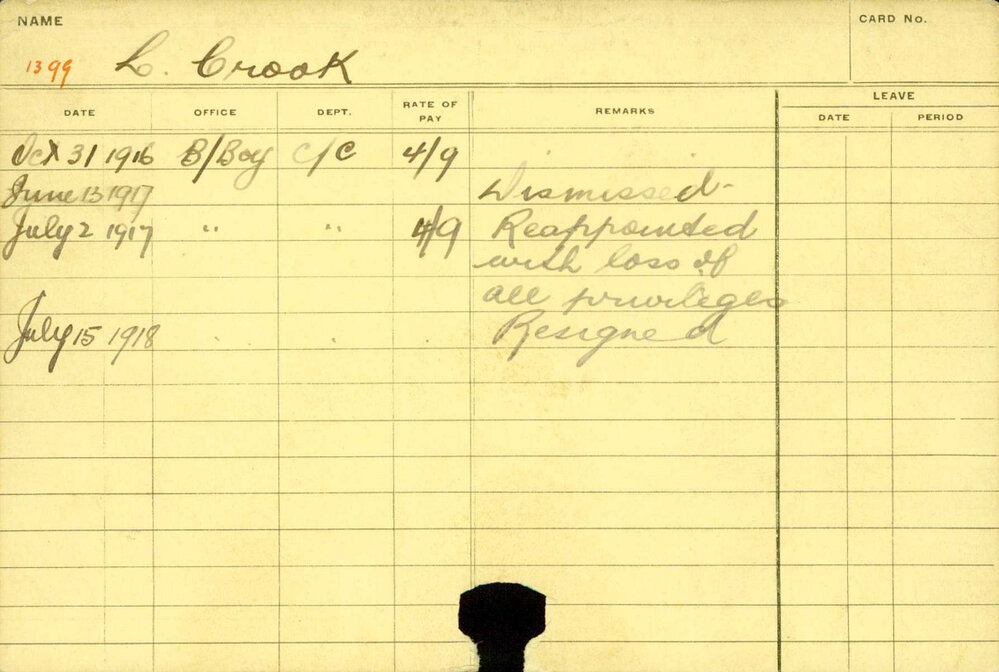 NAME
CARD No.
1399 L. Crook
DATE OFFICE DEPT. RATE OF PAY REMARKS LEAVE
DATE PERIOD
Oct 31 1916 B/Boy C/C 4/9
June 13 1917 Dismissed-
July 2 1917 " " 4/9 Reappointed
with loss of
all privileges
July 15 1918 Resigned